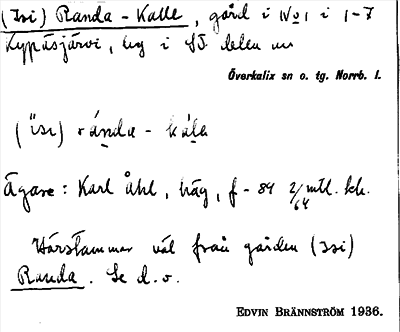 (Isi) Randa - Kalle, gård i No 1 i 1-7
Kypäsjärvi, lig i SÖ delen av
Överkalix sn o. tg. Norrb. l.
(ïsi) ránda - kálɛ
Ägare: Karl Åhl, häg, f - 84 2/64 mtl. kh.
Härstammar väl från gården (Isi)
Randa. Se d.o.
EDVIN BRÄNNSTRÖM 1936.